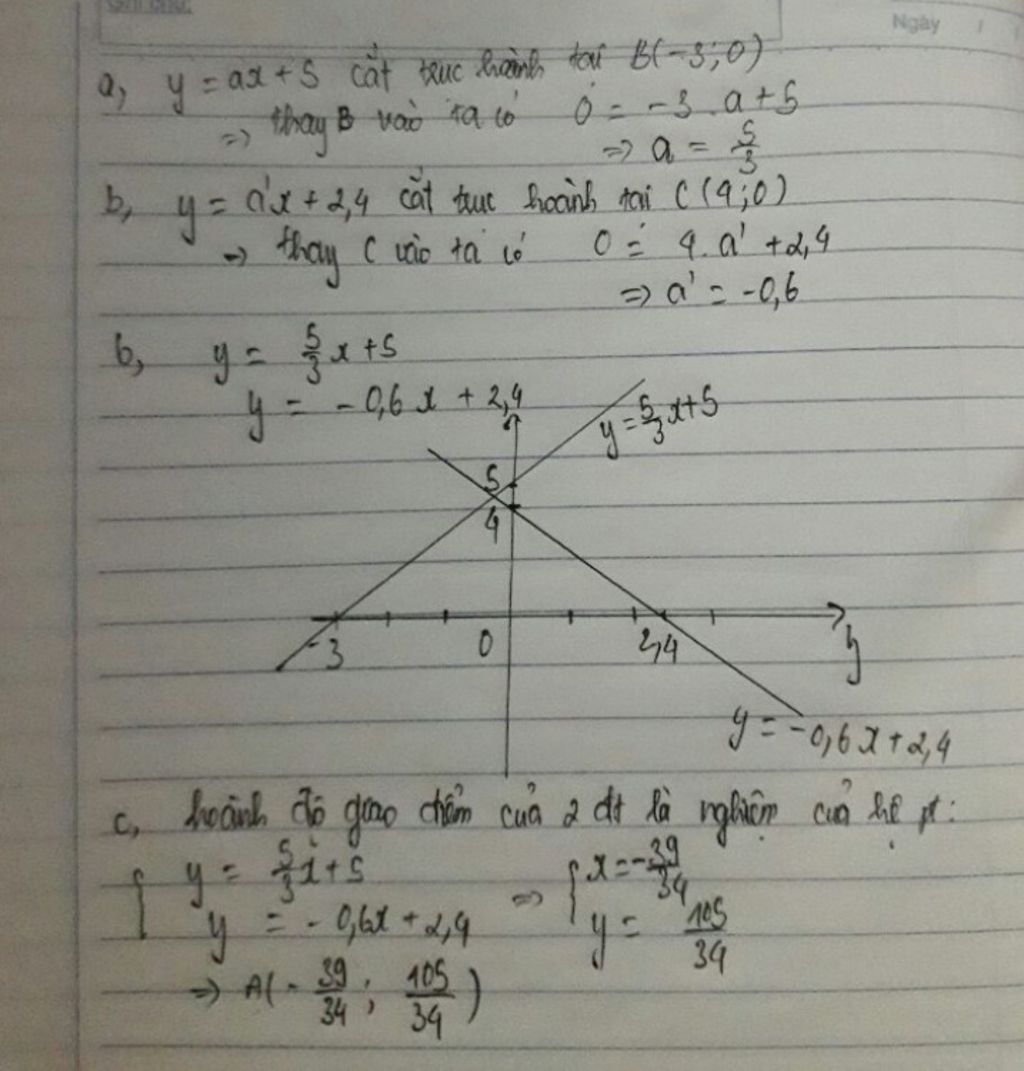 Ghi chú:
Ngày / /
a, y = ax + 5 cắt trục hoành tại B(-3; 0)
=> thay B vào ta có 0 = -3 . a + 5
=> a = 5/3
b, y = a'x + 2,4 cắt trục hoành tại C (4; 0)
=> thay C vào ta có 0 = 4. a' + 2,4
=> a' = -0,6
b, y = 5/3 x + 5
y = - 0,6 x + 2,4
y = 5/3 x + 5
5
4
-3 0 2,4 y
y = -0,6 x + 2,4
c, hoành độ giao điểm của 2 đt là nghiệm của hệ pt:
{ y = 5/3 x + 5 => { x = -39/34
y = - 0,6x + 2,4 y = 105/34
=> A(- 39/34 ; 105/34 )